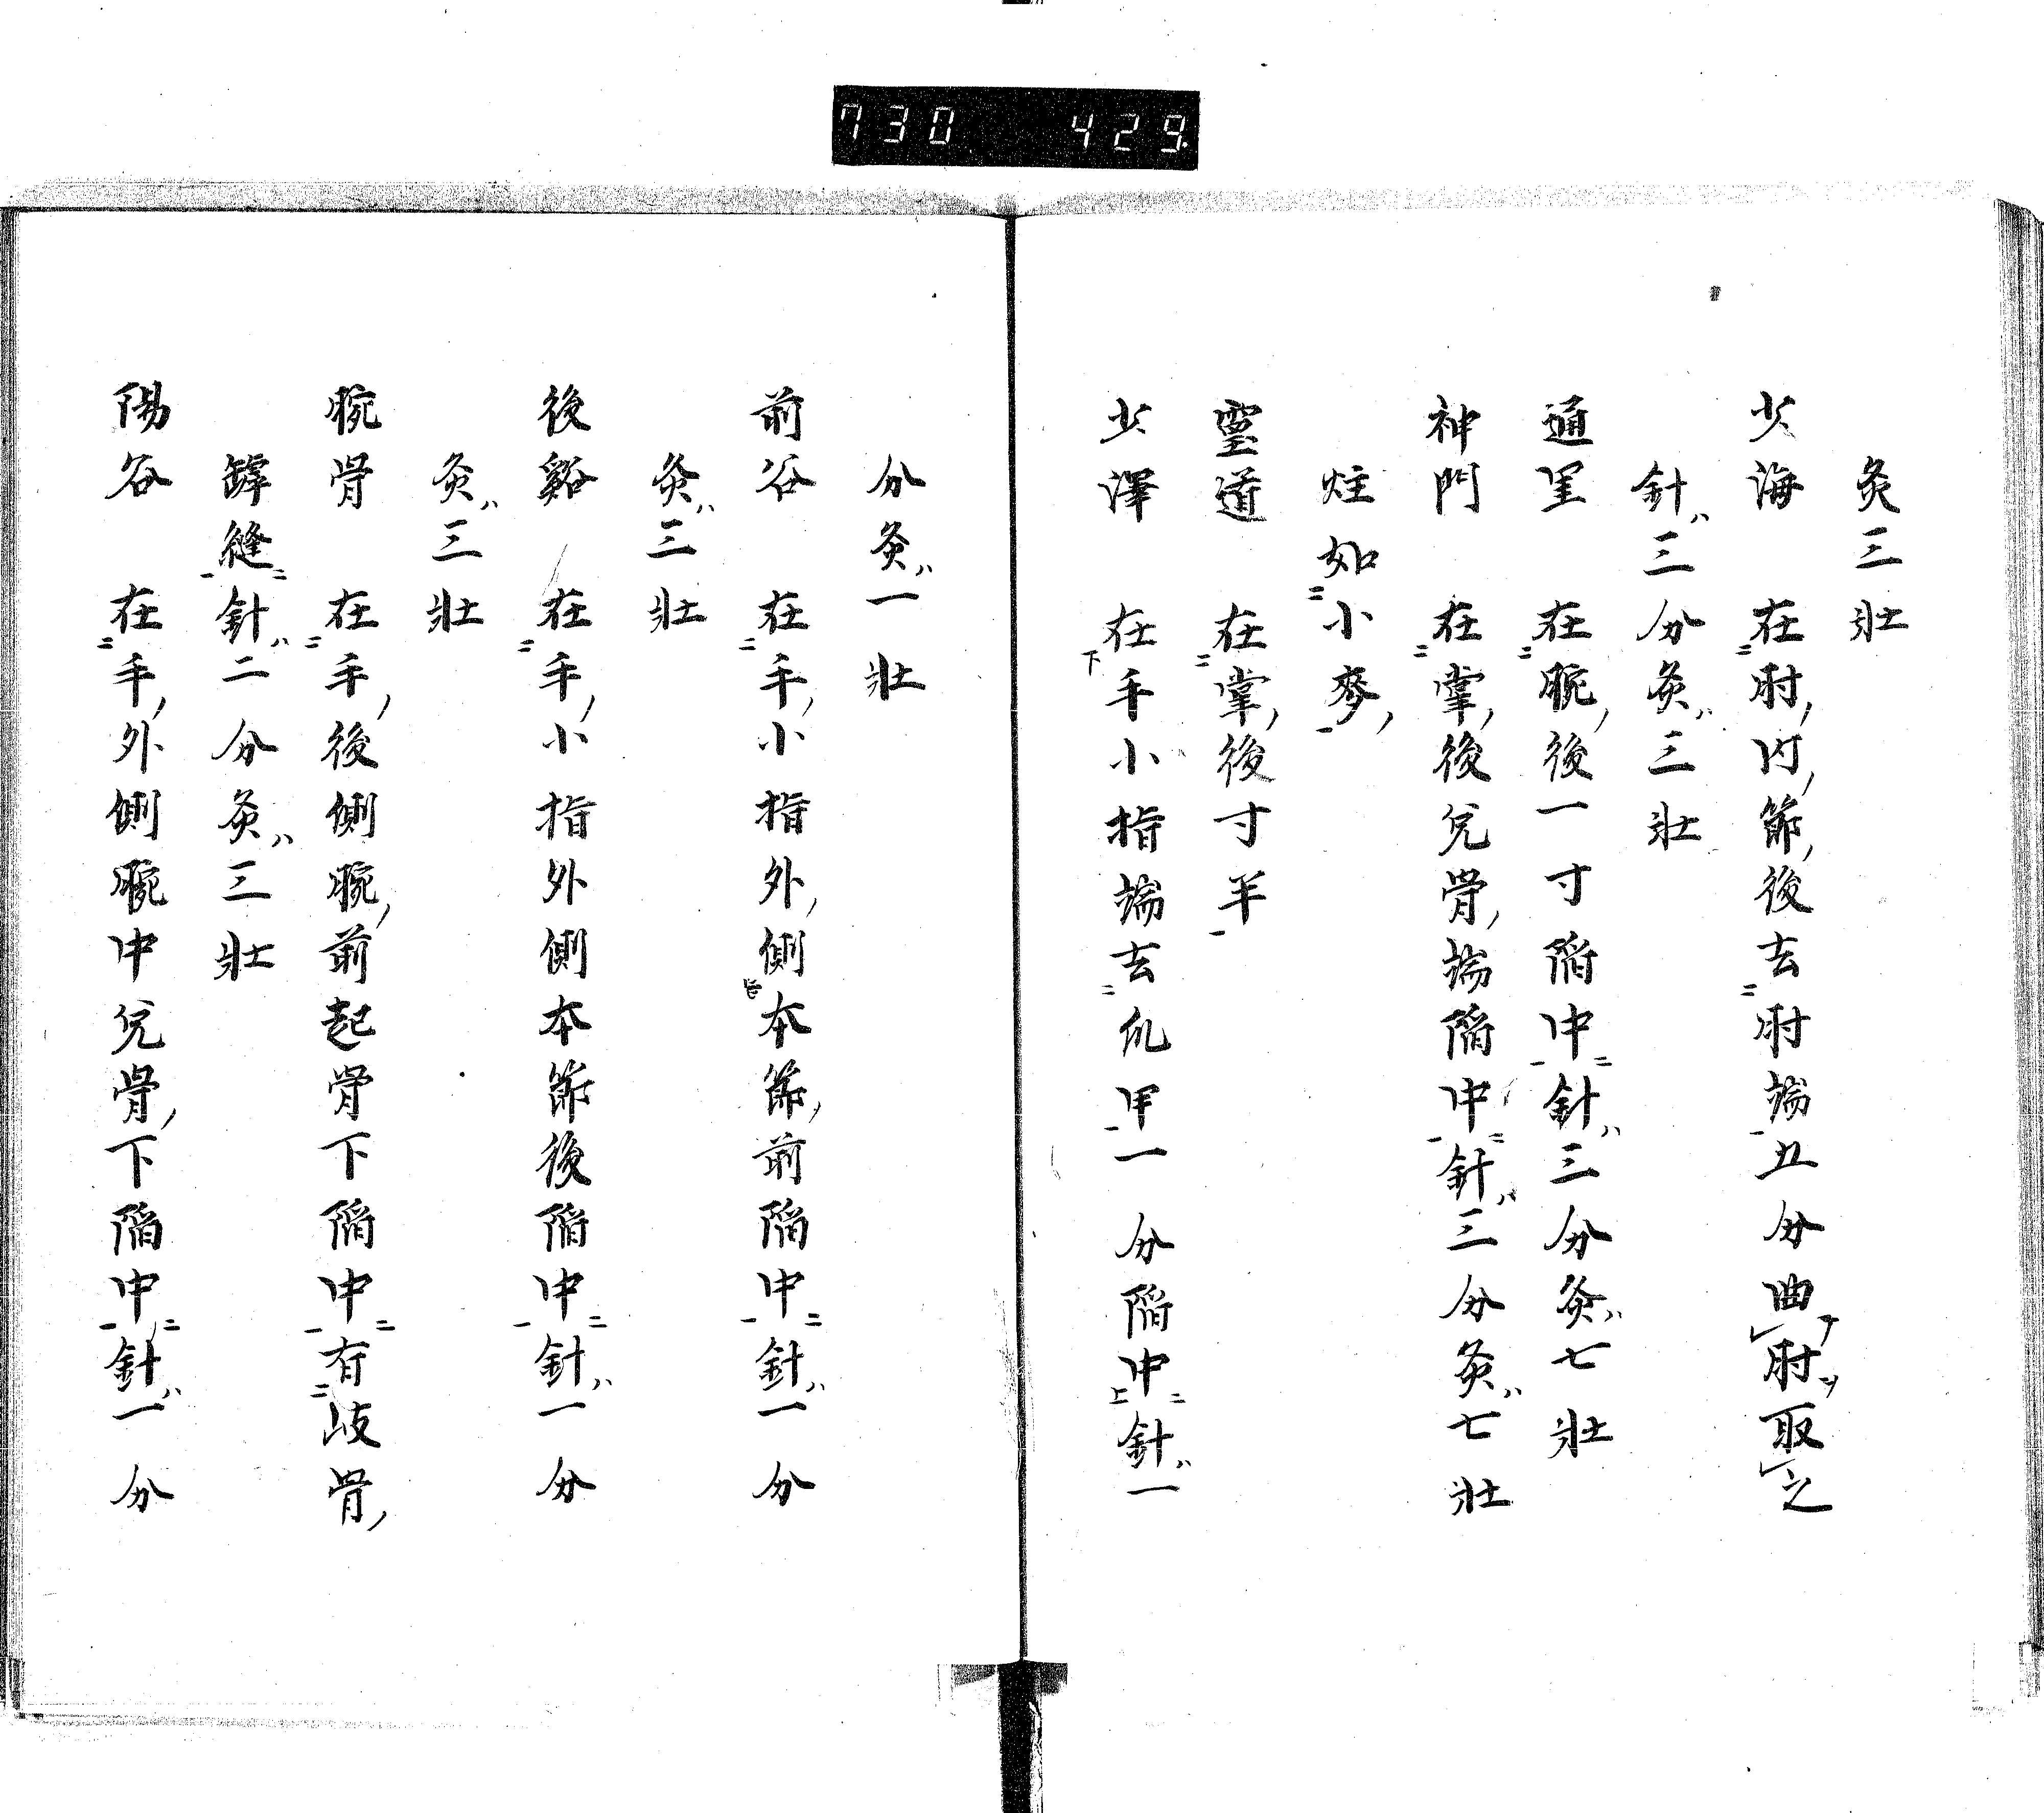 730 429
灸三壯
少海 在肘内節後去肘端五分曲肘取之
針三分灸三壯
通里 在腕後一寸陷中針三分灸七壯
神門 在掌後兌骨端陷中針三分灸七壯
炷如小麥
靈道 在掌後寸半
少澤 在手小指端去爪甲一分陷中針一
分灸一壯
前谷 在手小指外側本節前陷中針一分
灸三壯
後谿 在手小指外側本節後陷中針一分
灸三壯
腕骨 在手後側腕前起骨下陷中有歧骨
罅縫針二分灸三壯
陽谷 在手外側腕中兌骨下陷中針一分